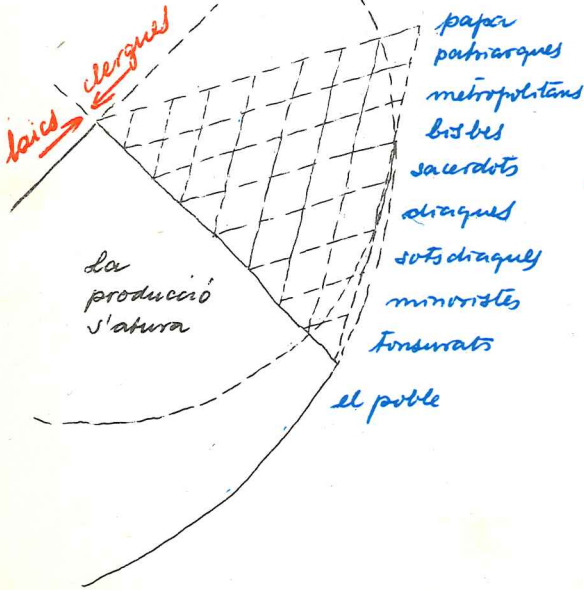 clergues
laics
papa
patriarques
metropolitans
bisbes
sacerdots
diaques
sotsdiaques
minoristes
tonsurats
el poble
la
producció
s'atura